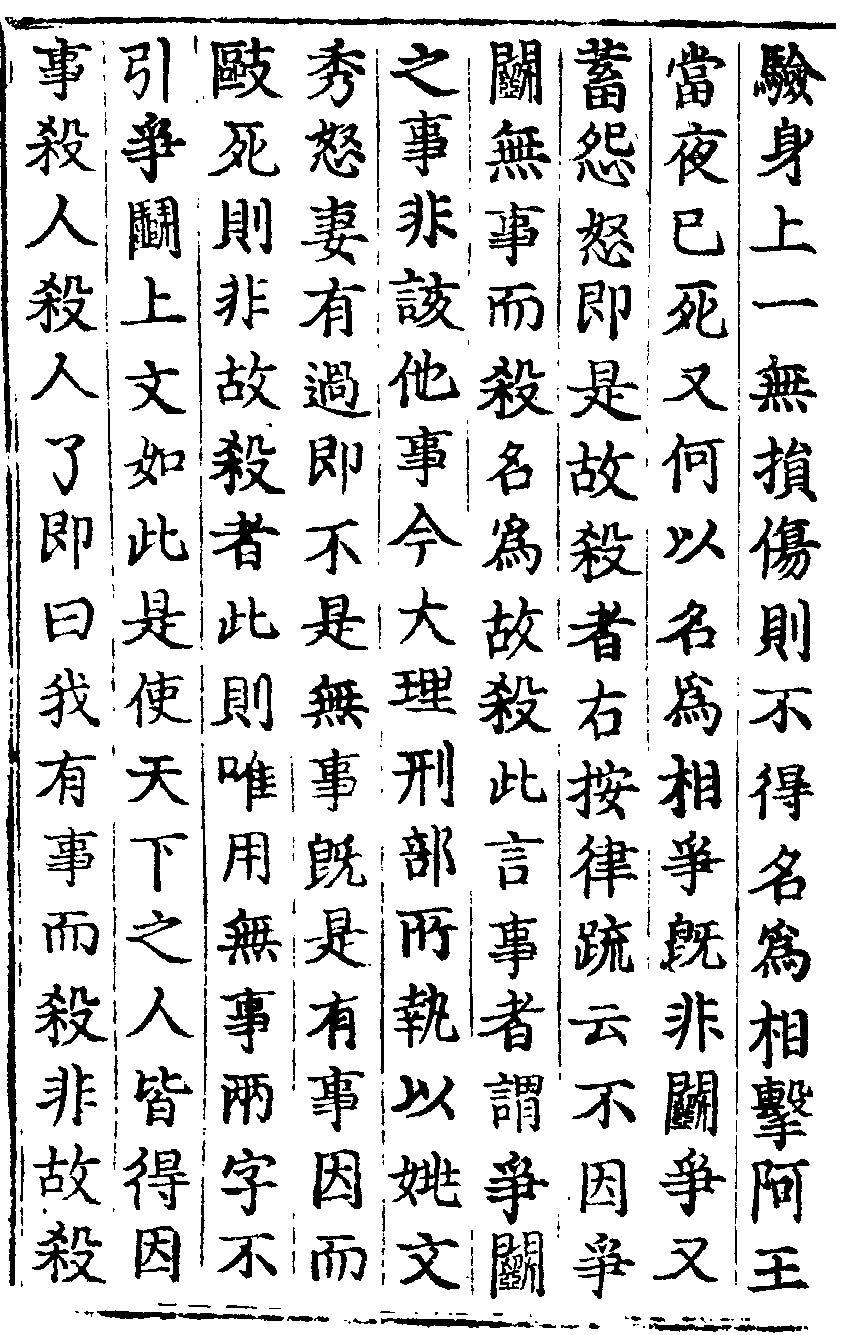 驗身上一無損傷則不得名爲相擊阿王
當夜已死又何以名爲相爭旣非鬭爭又
蓄怨怒即是故殺者右按律疏云不因爭
鬭無事而殺名爲故殺此言事者謂爭鬭
之事非該他事今大理刑部所執以姚文
秀怒妻有過即不是無事旣是有事因而
毆死則非故殺者此則唯用無事兩字不
引爭鬭上文如此是使天下之人皆得因
事殺人殺人了即曰我有事而殺非故殺